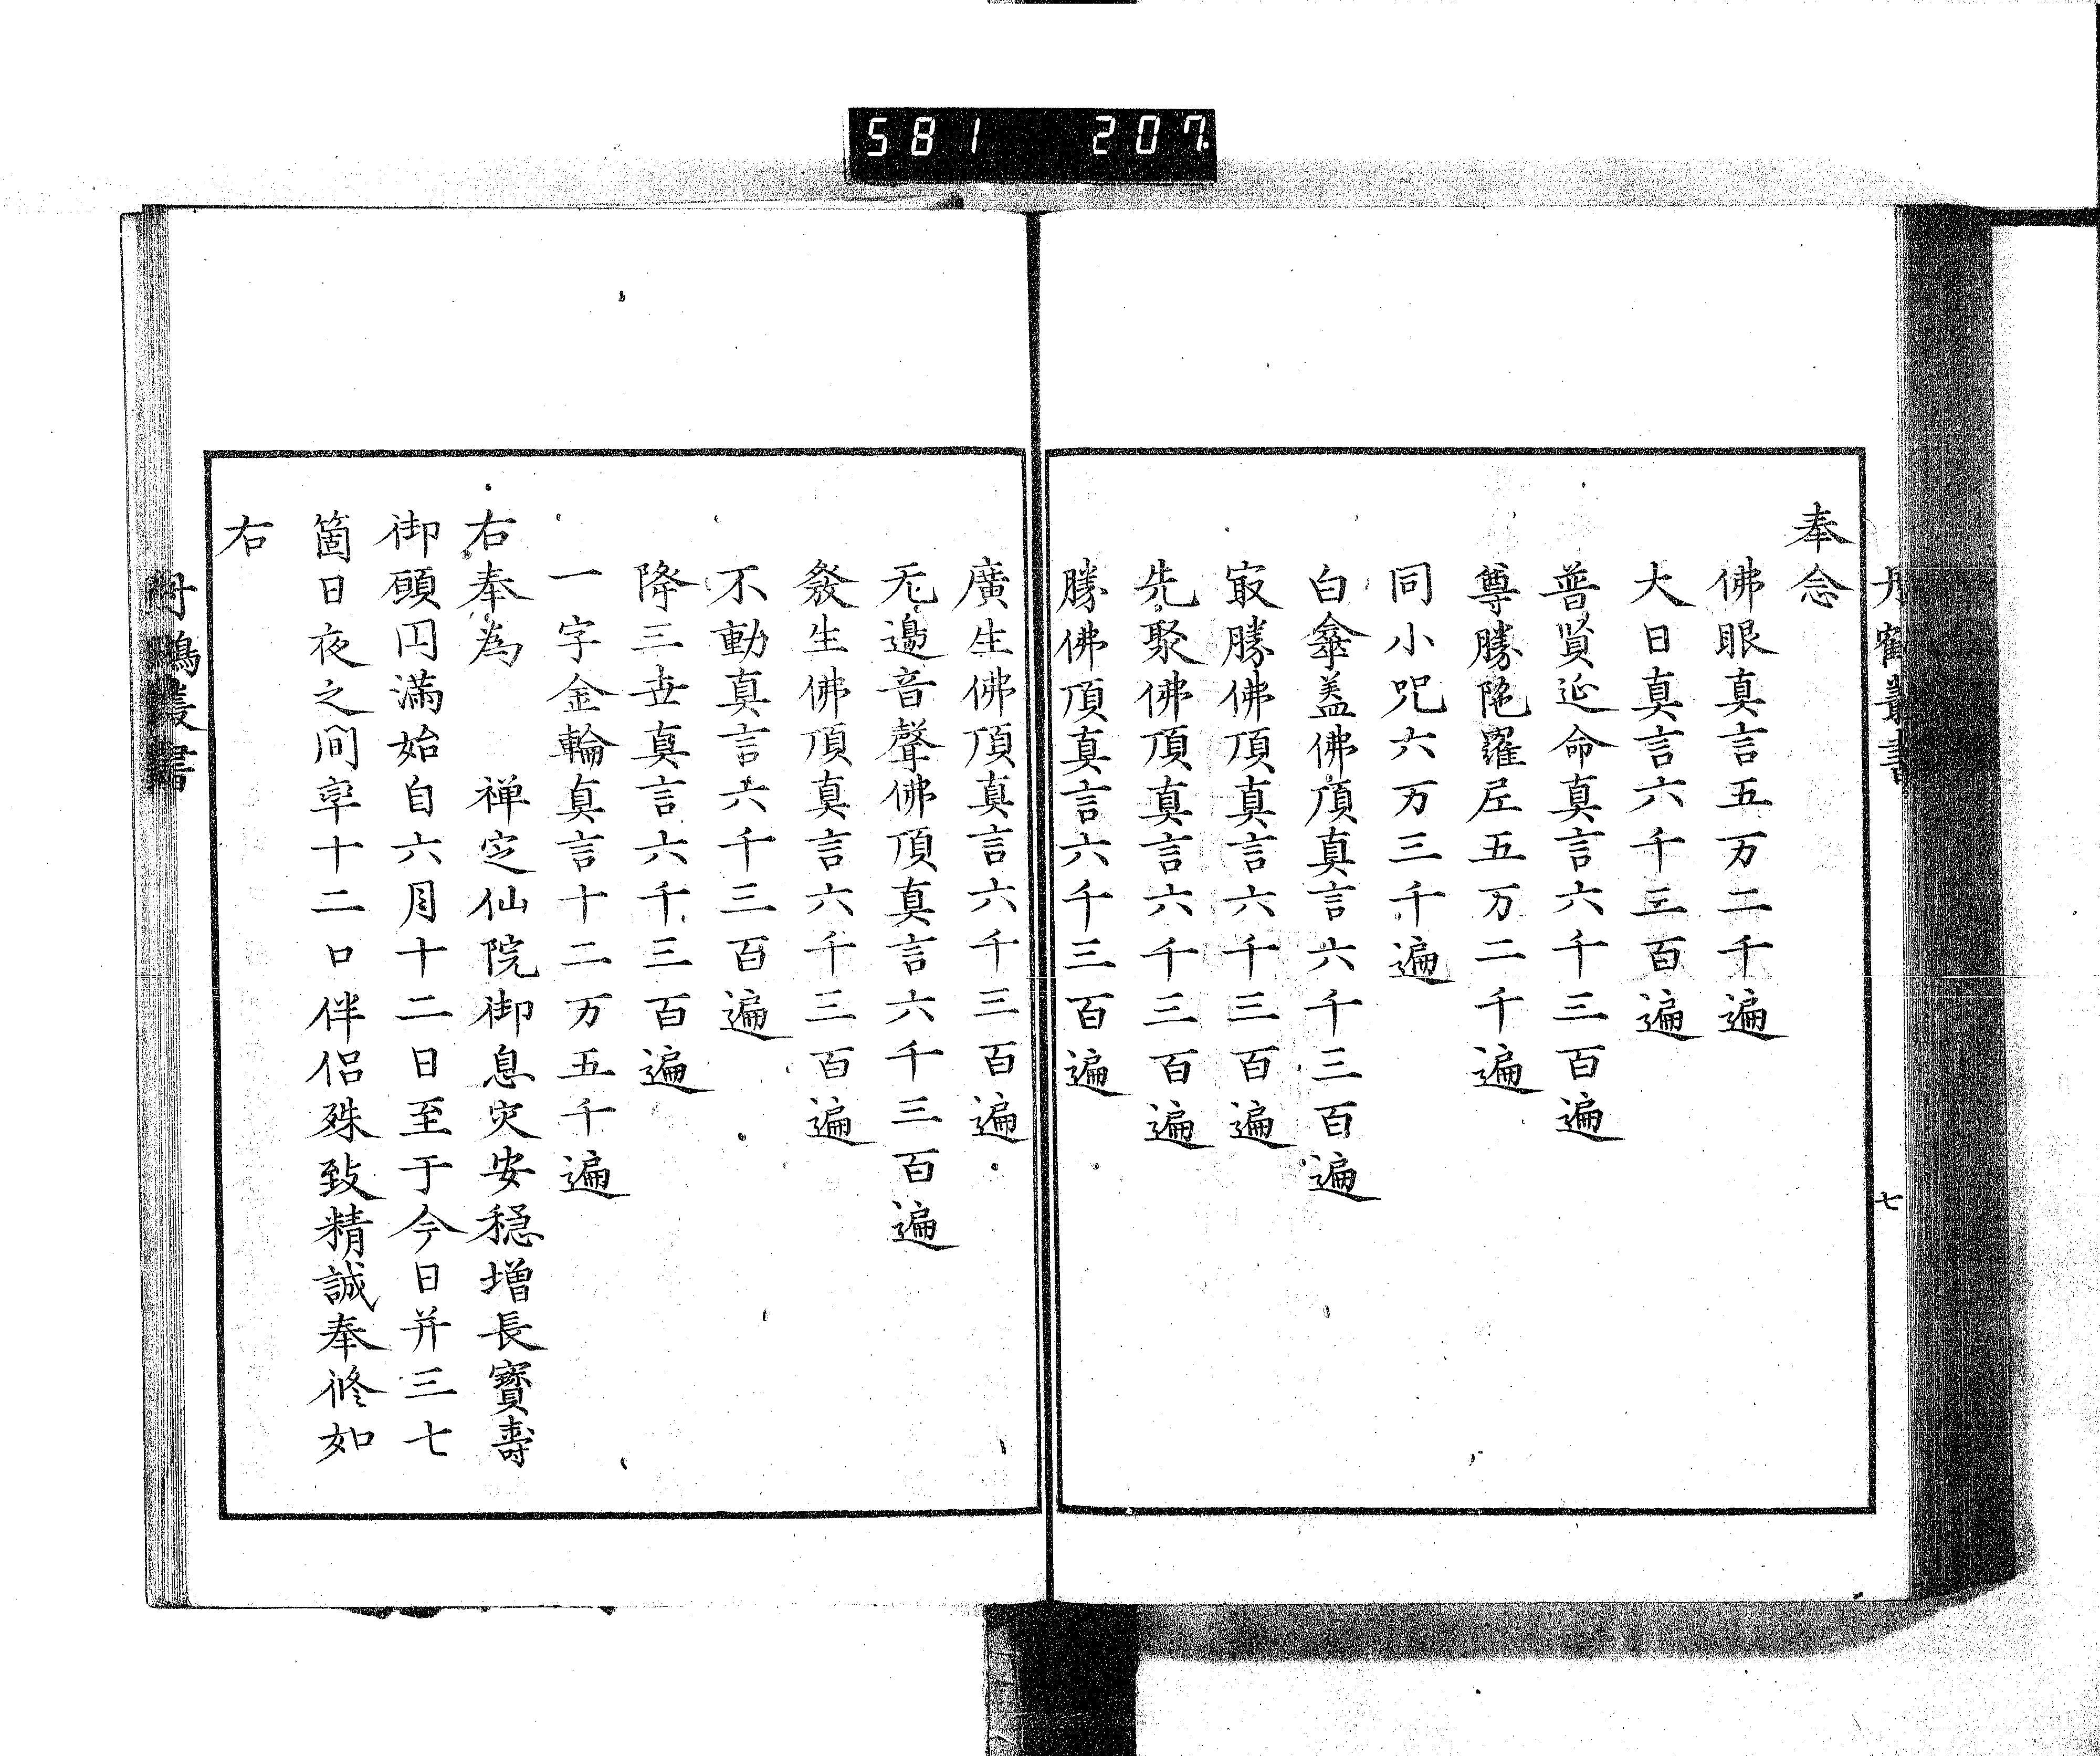 581 207
丹鶴叢書
七
奉念
佛眼真言五万二千遍
大日真言六千三百遍
普賢延命真言六千三百遍
尊勝陀羅尼五万二千遍
同小咒六万三千遍
白傘蓋佛頂真言六千三百遍
㝡勝佛頂真言六千三百遍
光聚佛頂真言六千三百遍
勝佛頂真言六千三百遍
廣生佛頂真言六千三百遍
无邊音聲佛頂真言六千三百遍
發生佛頂真言六千三百遍
不動真言六千三百遍
降三世真言六千三百遍
一字金輪真言十二万五千遍
右奉為　禅定仙院御息灾安穏増長寶壽
御願円滿始自六月十二日至于今日并三七
箇日夜之間率十二口伴侶殊致精誠奉修如
右
丹鶴叢書